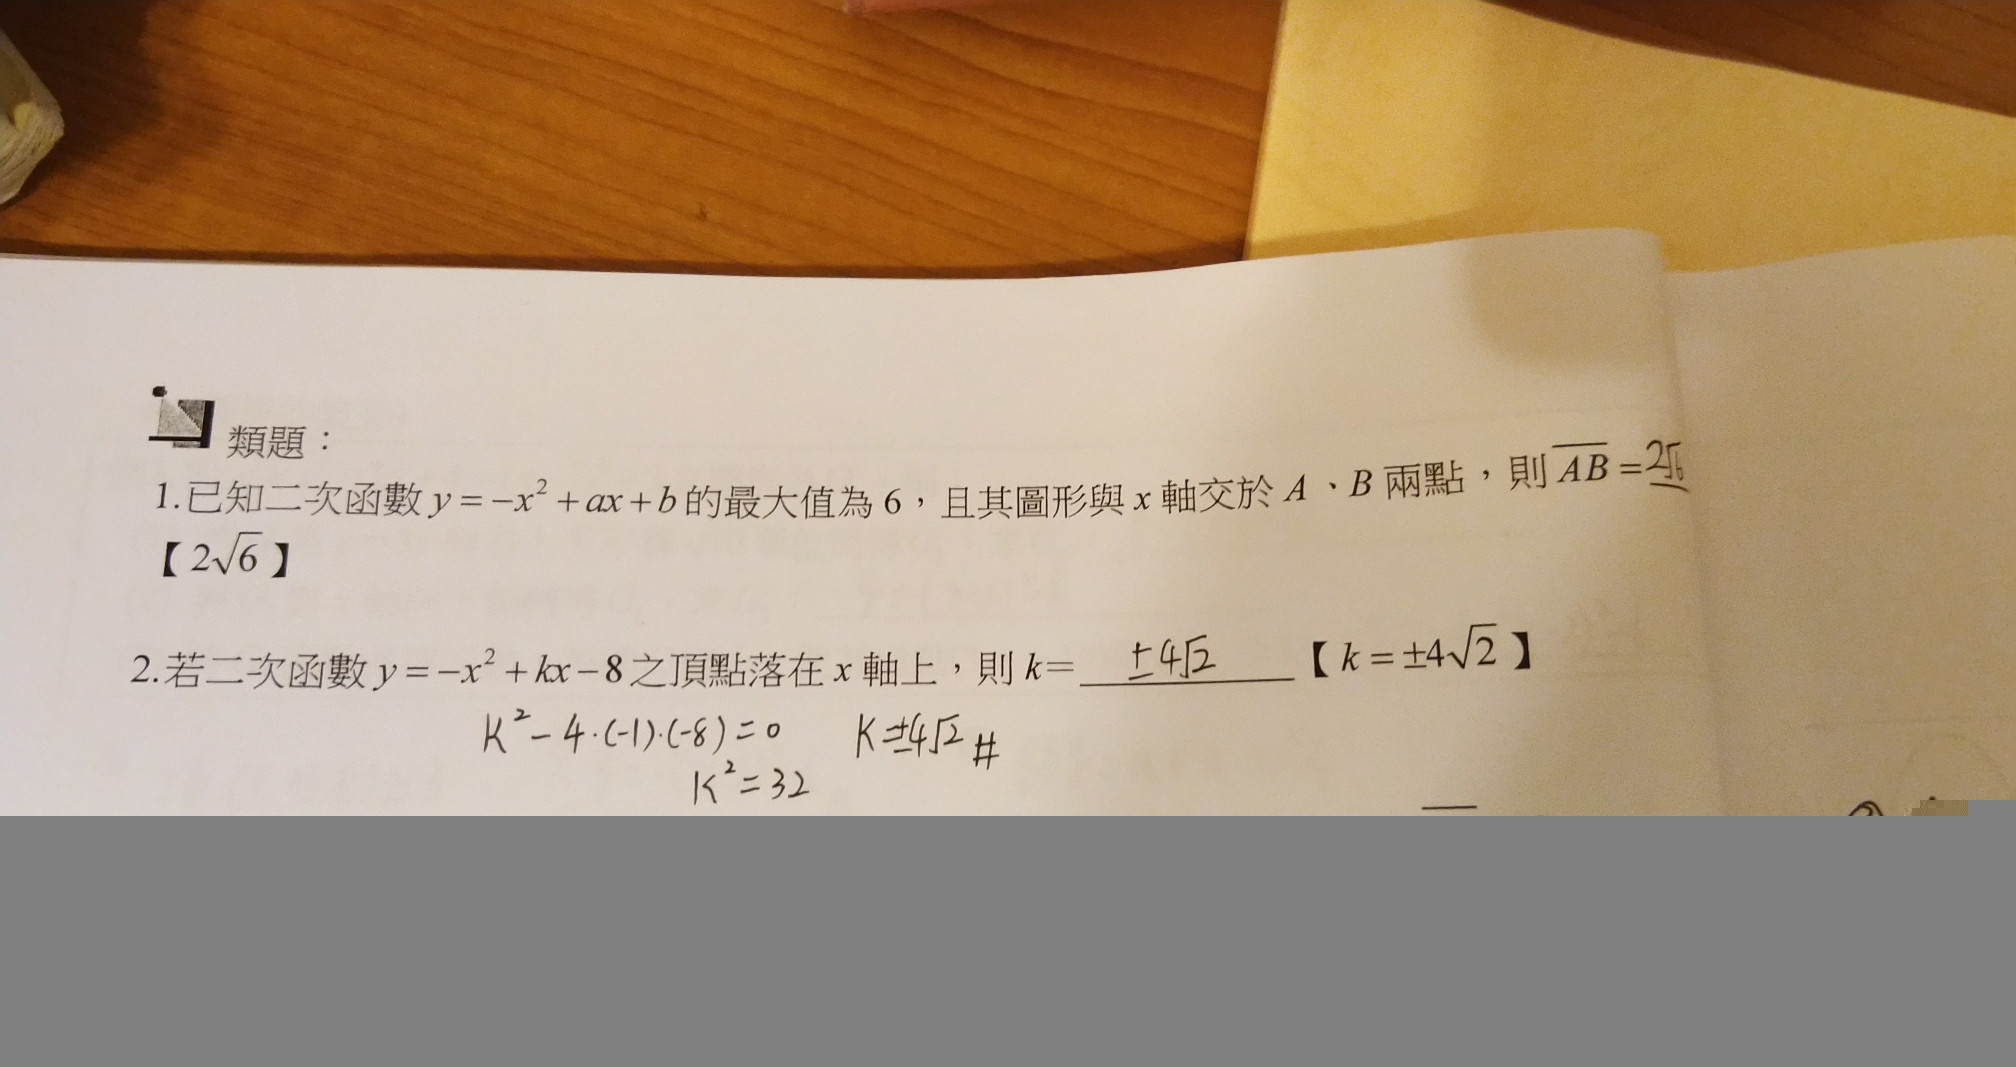 類題：
1.已知二次函數 y = −x² + ax + b 的最大值為 6，且其圖形與 x 軸交於 A、B 兩點，則 A̅B̅ = 2√6
【2√6】
2.若二次函數 y = −x² + kx − 8 之頂點落在 x 軸上，則 k = ±4√2 【k = ±4√2】
K² − 4·(−1)·(−8) = 0 K = ±4√2 #
K² = 32